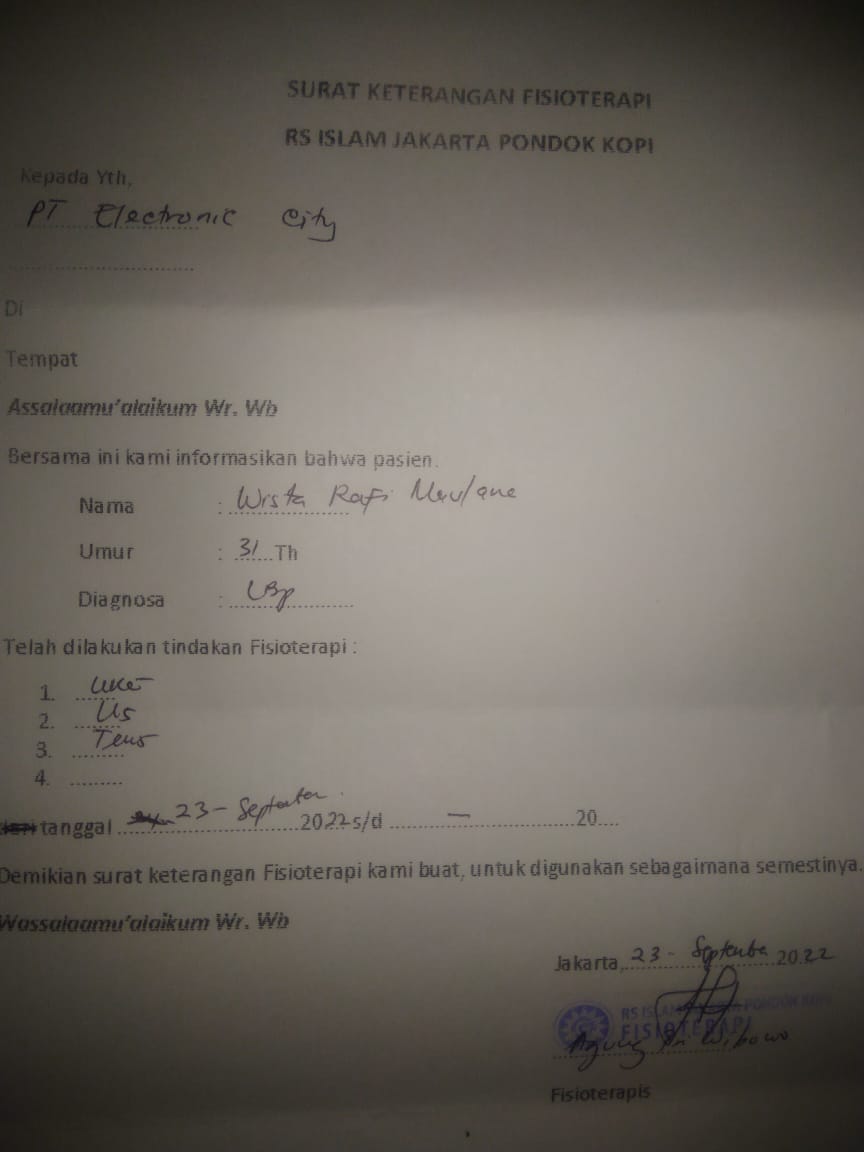 SURAT KETERANGAN FISIOTERAPI
RS ISLAM JAKARTA PONDOK KOPI
Kepada Yth,
PT Electronic City
Di
Tempat
Assalaamu'alaikum Wr. Wb
Bersama ini kami informasikan bahwa pasien.
Nama : Wista Rafi Maulana
Umur : 31 Th
Diagnosa : LBP
Telah dilakukan tindakan Fisioterapi :
1.
2. US
3. Tens
4. ........
tanggal 23 - September 2022 s/d — 20....
Demikian surat keterangan Fisioterapi kami buat, untuk digunakan sebagaimana semestinya.
Wassalaamu'alaikum Wr. Wb
Jakarta, 23 - September 2022
RS ISLAM JAKARTA PONDOK KOPI
FISIOTERAPI
Agung Tri Wibowo
Fisioterapis